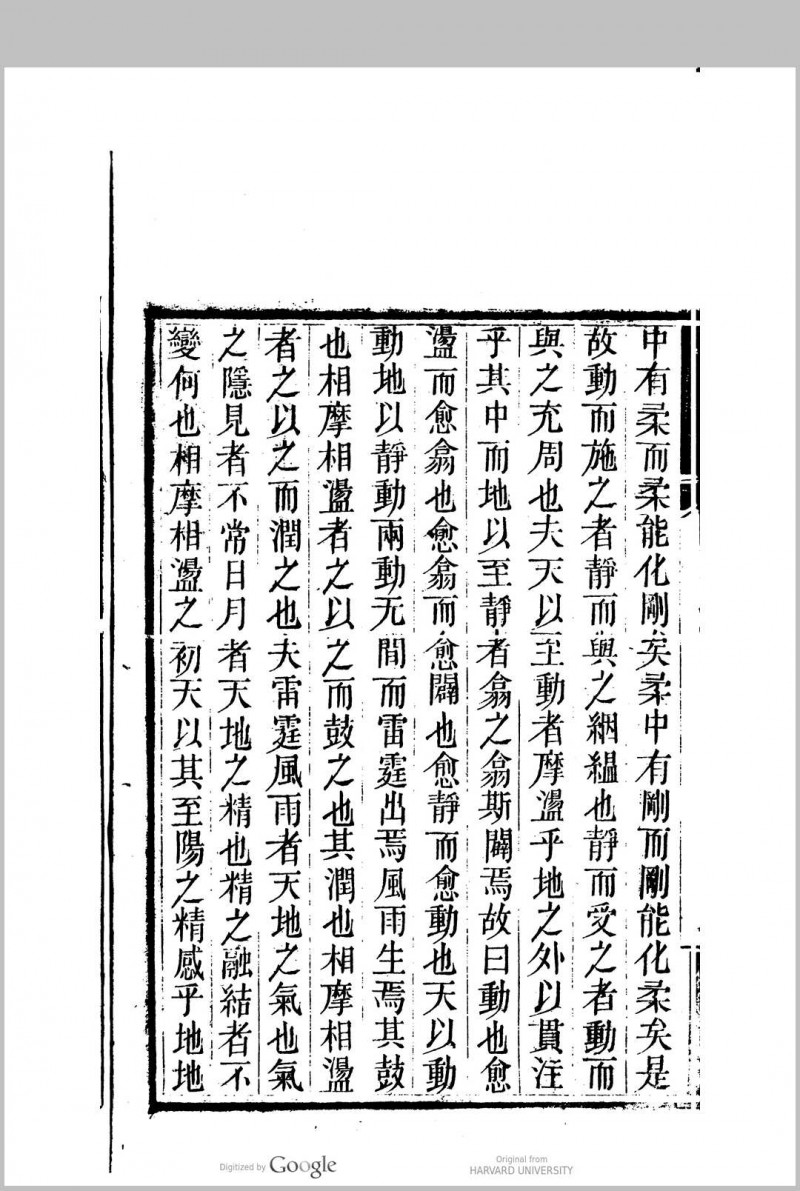 中有柔而柔能化剛矣柔中有剛而剛能化柔矣是
故動而施之者靜而與之絪縕也靜而受之者動而
與之充周也夫天以至動者摩盪乎地之外以貫注
乎其中而地以至靜者翕之翕斯闢焉故曰動也愈
盪而愈翕也愈翕而愈闢也愈靜而愈動也天以動
動地以靜動兩動无間而雷霆出焉風雨生焉其鼓
也相摩相盪者之以之而鼓之也其潤也相摩相盪
者之以之而潤之也夫雷霆風雨者天地之氣也氣
之隱見者不常日月者天地之精也精之融結者不
變何也相摩相盪之初天以其至陽之精感乎地地
Digitized by Google
Original from
HARVARD UNIVERSITY